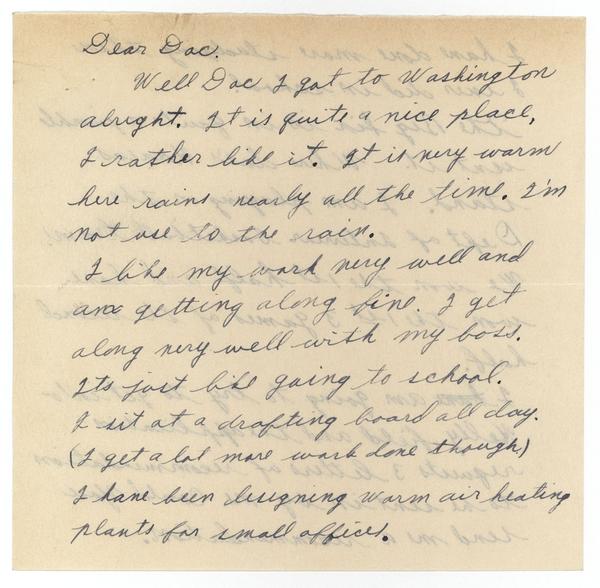 Dear Doc.
Well Doc I got to Washington
alright. It is quite a nice place,
I rather like it. It is very warm
here rains nearly all the time. I'm
not use to the rain.
I like my work very well and
am getting along fine. I get
along very well with my boss.
Its just like going to school.
I sit at a drafting board all day.
(I get a lot more work done though)
I have been designing warm air heating
plants for small offices.